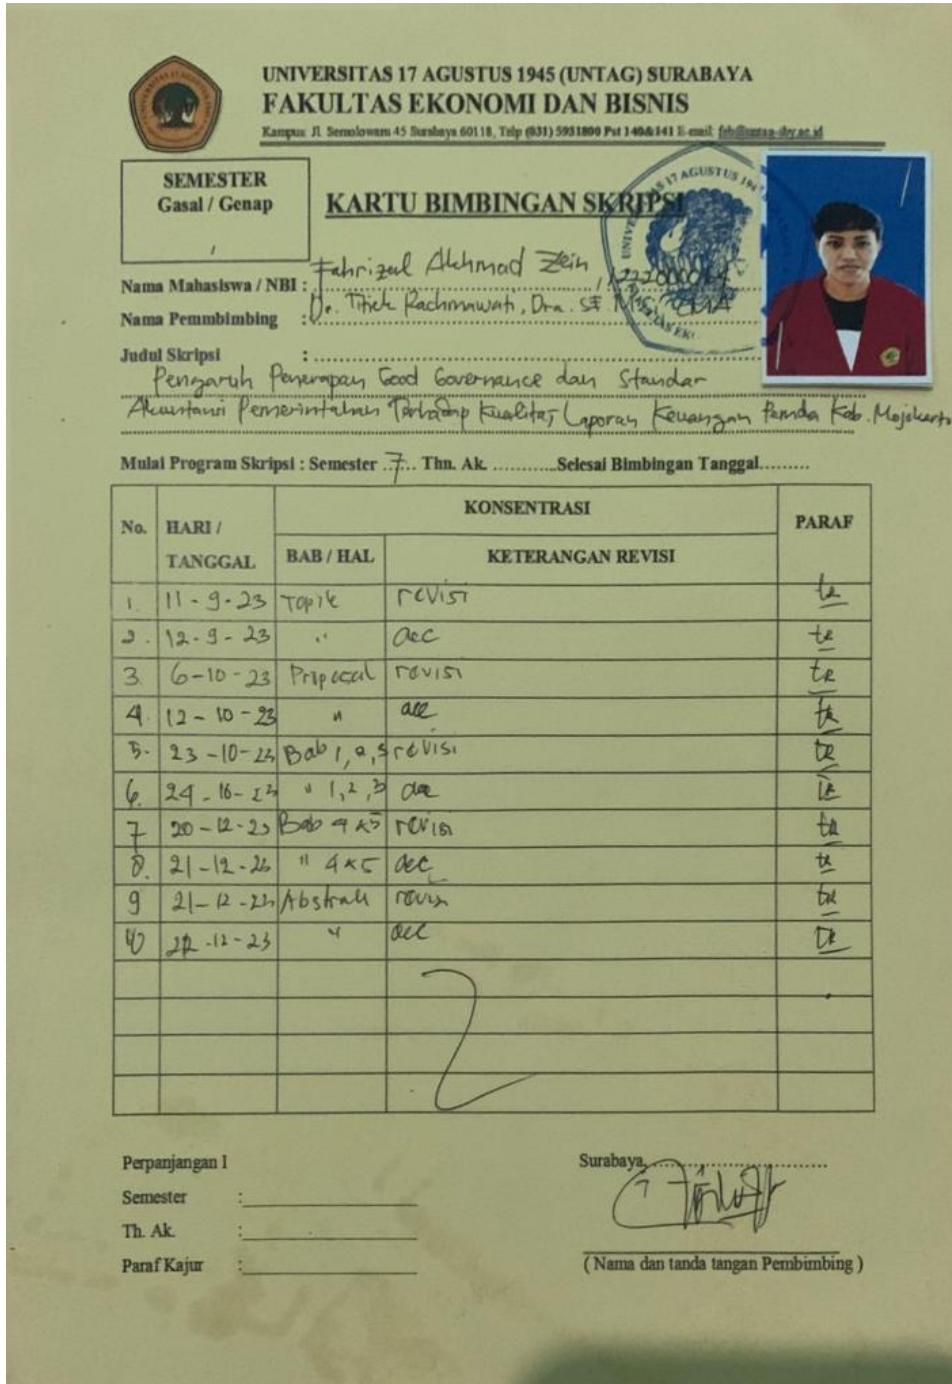 UNIVERSITAS 17 AGUSTUS 1945 (UNTAG) SURABAYA
FAKULTAS EKONOMI DAN BISNIS
Kampus: Jl. Semolowaru 45 Surabaya 60118, Telp (031) 5931800 Pst 140&141 E-mail: feb@untag-sby.ac.id
SEMESTER
Gasal / Genap
/
KARTU BIMBINGAN SKRIPSI
Nama Mahasiswa / NBI : Fahrizal Akhmad Zein,
Nama Pemmbimbing : Dr. Titiek Rachmawati, Dra. SE
Judul Skripsi :
Pengaruh Penerapan Good Governance dan Standar
Akuntansi Pemerintahan Terhadap Kualitas Laporan Keuangan Pemda Kab. Mojokerto
Mulai Program Skripsi : Semester 7 Thn. Ak. ............Selesai Bimbingan Tanggal.........
No. HARI / TANGGAL KONSENTRASI PARAF
BAB / HAL KETERANGAN REVISI
1. 11-9-23 Topik revisi tr
2. 12-9-23 " acc tr
3. 6-10-23 Proposal revisi tr
4. 12-10-23 " acc tr
5. 23-10-23 Bab 1,2,3 revisi tr
6. 24-10-23 " 1,2,3 acc tr
7 20-12-23 Bab 4 & 5 revisi tr
8. 21-12-23 " 4 & 5 acc tr
9 21-12-23 Abstrak revisi tr
10 22-12-23 " acc tr
Perpanjangan I
Semester :
Th. Ak. :
Paraf Kajur :
Surabaya,..............................
( Nama dan tanda tangan Pembimbing )